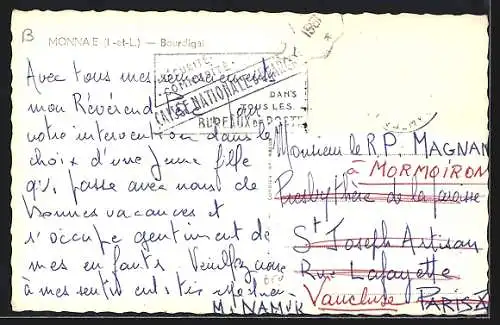 B
MONNAIE (I-et-L.) — Bourdigal
1961
SÉCURITÉ
CAISSE NATIONALE D'ÉPARGNE
DANS
TOUS LES
BUREAUX DE POSTE
Avec tous mes remerciements
mon Révérend Père pour
votre intervention dans le
choix d'une jeune fille
qui passe avec nous de
bonnes vacances et
s'occupe gentiment de
mes enfants Veuillez croire
à mes sentiments très
M. NAMUR
Monsieur le R.P. MAGNAN
à MORMOIRON
Presbythère de la paroisse
St Joseph Artisan
Rue Lafayette
Vaucluse PARIS